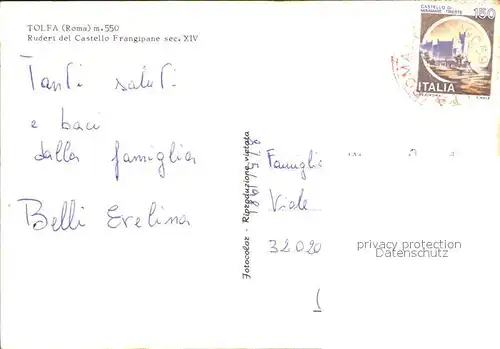 TOLFA (Roma) m. 550
Ruderi del Castello Frangipane sec. XIV
Tanti saluti
e baci
dalla famiglia
Belli Evelina
Fotocolor - Riproduzione vietata
8/5/1981
CASTELLO DI
MIRAMARE - TRIESTE
150
ITALIA
ROMA
Famigli
Viale
32020
privacy protection
Datenschutz